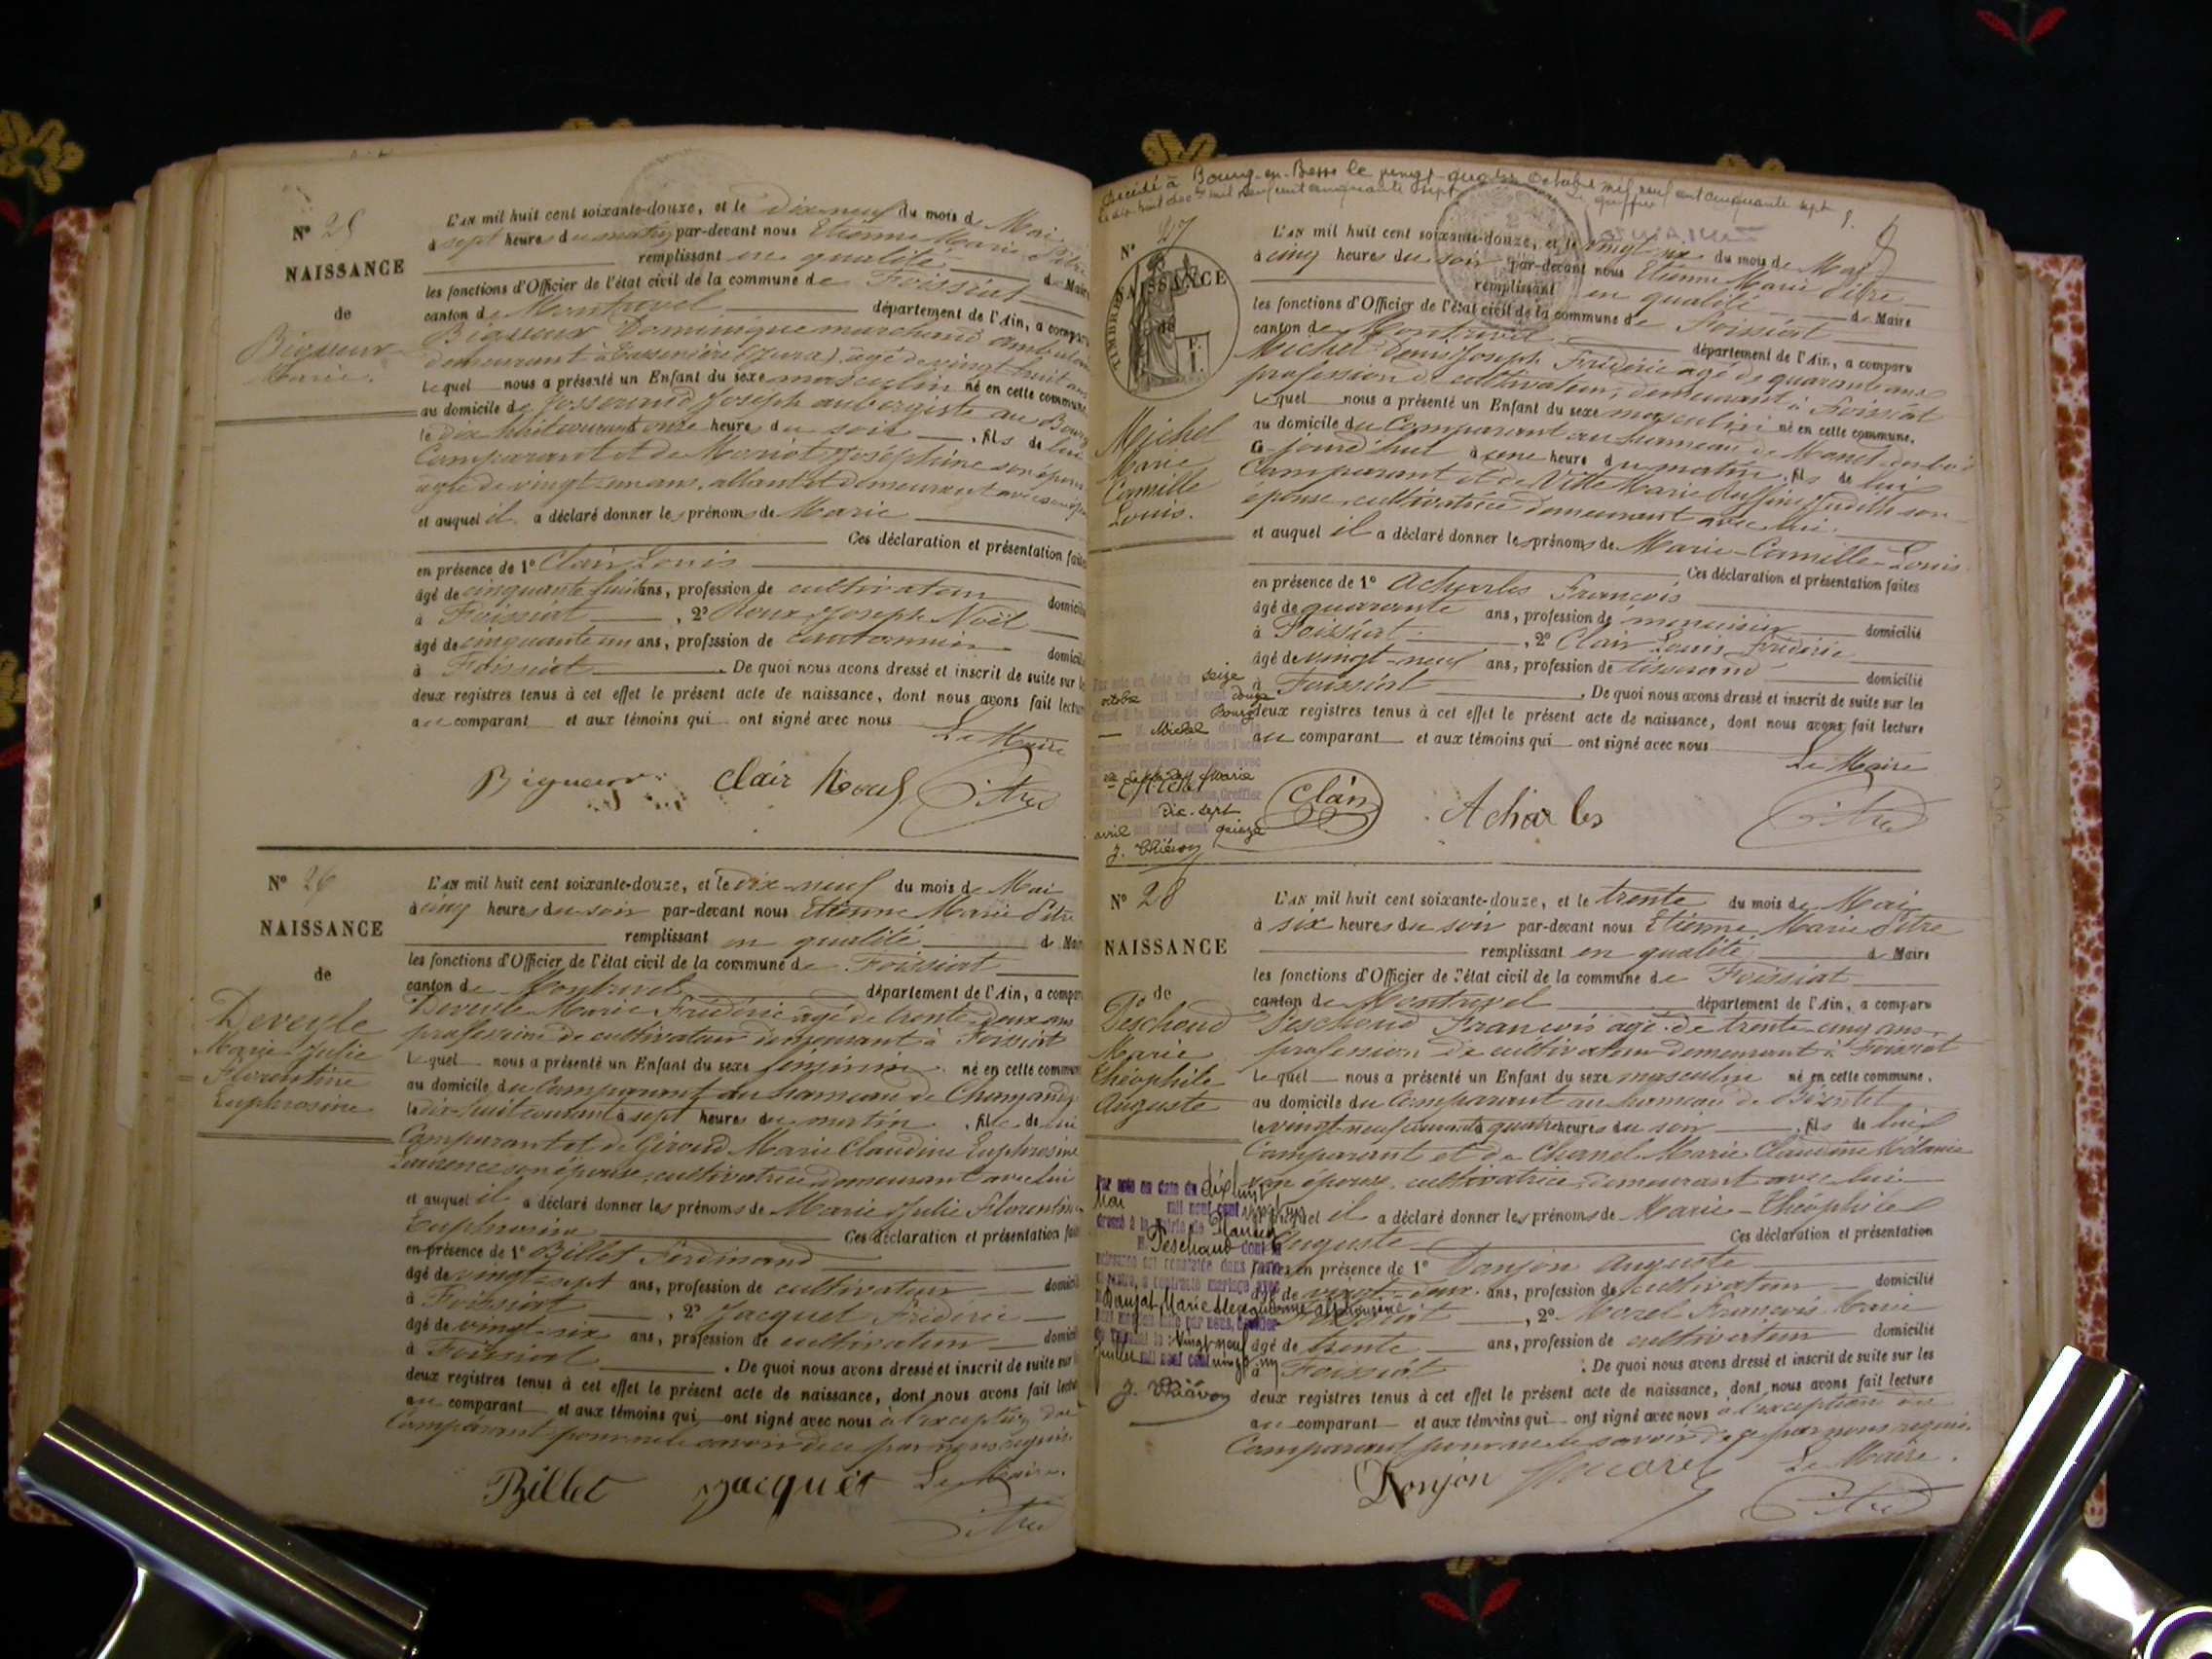 N° 25
NAISSANCE
de
Bigueur
Marie.
L'AN mil huit cent soixante-douze, et le dix-neuf du mois de Mai
à sept heures du matin par-devant nous Etienne Marie Pitre
remplissant en qualité de Maire
les fonctions d'Officier de l'état civil de la commune de Foissiat
canton de Montrevel département de l'Ain, a comparu
Bigueur Dominique marchand ambulant
demeurant à (Jura), âgé de vingt huit ans
Lequel nous a présenté un Enfant du sexe masculin né en cette commune
au domicile de Josserand Joseph aubergiste au Bourg
le dix huit courant onze heures du soir, fils de lui
Comparant et de Joséphine son épouse
âgée de vingt un ans, allant et demeurant avec
et auquel il a déclaré donner les prénoms de Marie
Ces déclaration et présentation faites
en présence de 1° Clair Louis
âgé de cinquante huit ans, profession de cultivateur domicilié
à Foissiat, 2° Roux Joseph Noël
âgé de cinquante un ans, profession de cantonnier domicilié
à Foissiat. De quoi nous avons dressé et inscrit de suite sur les
deux registres tenus à cet effet le présent acte de naissance, dont nous avons fait lecture
au comparant et aux témoins qui ont signé avec nous
Le Maire
Bigueur Clair Roux Pitre
N° 26
NAISSANCE
de
Deveyle
Marie-Julie
Florentine
Euphrosine
L'AN mil huit cent soixante-douze, et le dix-neuf du mois de Mai
à cinq heures du soir par-devant nous Etienne Marie Pitre
remplissant en qualité de Maire
les fonctions d'Officier de l'état civil de la commune de Foissiat
canton de Montrevel département de l'Ain, a comparu
Deveyle Marie Frédéric âgé de trente-deux ans
profession de cultivateur demeurant à Foissiat
Lequel nous a présenté un Enfant du sexe féminin né en cette commune
au domicile du Comparant au hameau de
le dix-huit courant à sept heures du matin, fille de lui
Comparant et de Giroud Marie Claudine Euphrosine
Laurence son épouse, cultivatrice demeurant avec lui
et auquel il a déclaré donner les prénoms de Marie Julie Florentine
Euphrosine Ces déclaration et présentation faites
en présence de 1° Billet Ferdinand
âgé de vingt-sept ans, profession de cultivateur domicilié
à Foissiat, 2° Jacquet Frédéric
âgé de vingt-six ans, profession de cultivateur domicilié
à Foissiat. De quoi nous avons dressé et inscrit de suite sur les
deux registres tenus à cet effet le présent acte de naissance, dont nous avons fait lecture
au comparant et aux témoins qui ont signé avec nous à l'exception du
Comparant pour ne le savoir de ce par nous requis.
Billet Jacquet Le Maire.
Pitre
Décédé à Bourg-en-Bresse le vingt-quatre Octobre mil neuf cent cinquante sept
le dix huit mil neuf cent cinquante sept greffier
N° 27
NAISSANCE
de
TIMBRE
Michel
Marie
Camille
Louis.
L'AN mil huit cent soixante-douze, et le vingt six du mois de Mai
à cinq heures du soir par-devant nous Etienne Marie Pitre
remplissant en qualité de Maire
les fonctions d'Officier de l'état civil de la commune de Foissiat
canton de Montrevel département de l'Ain, a comparu
Michel Denis Joseph Frédéric âgé de quarante ans
profession de cultivateur, demeurant à Foissiat
Lequel nous a présenté un Enfant du sexe masculin né en cette commune.
au domicile du Comparant au hameau de
ce jourd'hui à une heure du matin, fils de lui
Comparant et de Marie Judith son
épouse cultivatrice demeurant avec lui.
et auquel il a déclaré donner les prénoms de Marie-Camille-Louis
Ces déclaration et présentation faites
en présence de 1° Acharles François
âgé de quarante ans, profession de menuisier domicilié
à Foissiat, 2° Clair Louis Frédéric
âgé de vingt-neuf ans, profession de tisserand domicilié
à Foissiat. De quoi nous avons dressé et inscrit de suite sur les
deux registres tenus à cet effet le présent acte de naissance, dont nous avons fait lecture
au comparant et aux témoins qui ont signé avec nous
Le Maire
Par acte en date du seize
octobre mil neuf cent douze
dressé à la Mairie de Bourg
Michel dont la
naissance est constatée dans l'acte
ci-contre, a contracté mariage avec
Marie
Greffier
dix-sept
avril mil neuf cent quinze
J. Thiévon
Clair Acharles Pitre
N° 28
NAISSANCE
de
Peschoud
Marie
Théophile
Auguste
L'AN mil huit cent soixante-douze, et le trente du mois de Mai
à six heures du soir par-devant nous Etienne Marie Pitre
remplissant en qualité de Maire
les fonctions d'Officier de l'état civil de la commune de Foissiat
canton de Montrevel département de l'Ain, a comparu
Peschoud François âgé de trente-cinq ans
profession de cultivateur demeurant à Foissiat
Lequel nous a présenté un Enfant du sexe masculin né en cette commune.
au domicile du Comparant au hameau de
le vingt-neuf courant à quatre heures du soir, fils de lui
Comparant et de Chanel Marie Claudine Mélanie
son épouse, cultivatrice demeurant avec lui
et auquel il a déclaré donner les prénoms de Marie-Théophile
Auguste Ces déclaration et présentation
faites en présence de 1° Donjon Auguste
âgé de vingt-deux ans, profession de cultivateur domicilié
à Foissiat, 2° Morel François Marie
âgé de trente ans, profession de cultivateur domicilié
à Foissiat. De quoi nous avons dressé et inscrit de suite sur les
deux registres tenus à cet effet le présent acte de naissance, dont nous avons fait lecture
au comparant et aux témoins qui ont signé avec nous à l'exception du
Comparant pour ne le savoir de ce par nous requis.
Par acte en date du dix huit
Mai mil neuf cent vingt un
dressé à la Mairie de
Peschoud dont la
naissance est constatée dans l'acte
ci-contre, a contracté mariage avec
Marie Alexandrine
vingt neuf
juillet mil neuf cent vingt un
J. Thiévon
Donjon Morel Le Maire.
Pitre